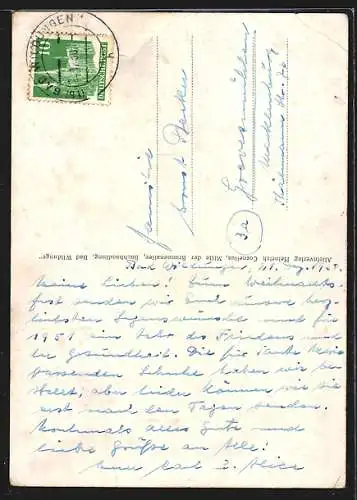 WILDUNGEN
10
DEUTSCHE POST
Familie
Ernst
Grevesmühlen
Mecklenburg
3a
Alleinverlag Heinrich Cornelius, Mitte der Brunnenallee, Buchhandlung, Bad Wildungen
Bad Wildungen, 21. Dez. 1950
Meine Lieben! Zum Weihnachts-
fest senden wir Euch unsere herz-
lichsten Segenswünsche und für
1951 ein Jahr des Friedens und
der Gesundheit. Die für Tante
passenden Schuhe haben wir be-
stellt, aber leider können wir sie
erst nach den Tagen senden.
Nochmals alles Gute und
liebe Grüße an Alle!
Eure